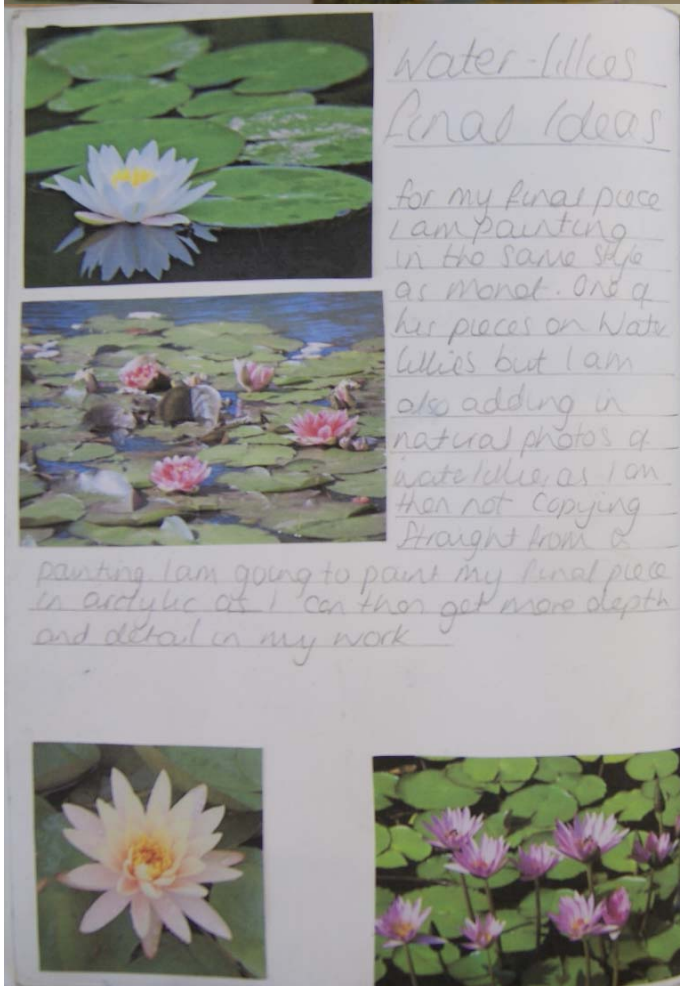 Water-lillies
final Ideas
for my final piece
I am painting
in the same style
as monet. One of
his pieces on Water
lillies but I am
also adding in
natural photos of
waterlillies as I am
then not copying
straight from a
painting. I am going to paint my final piece
in arcylic as I can then get more depth
and detail in my work